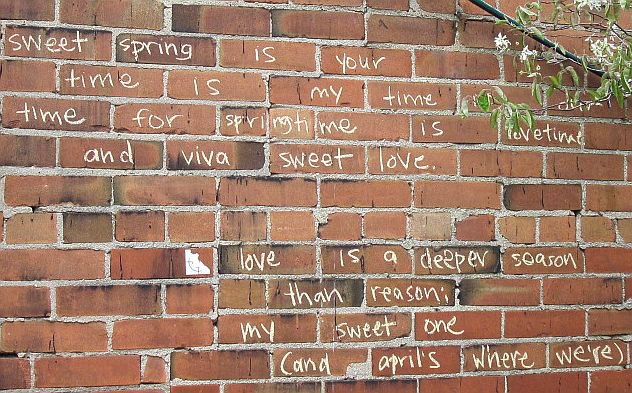 sweet spring is your
time is my time
time for springtime is lovetime
and viva sweet love.
love is a deeper season
than reason;
my sweet one
(and april's where we're)